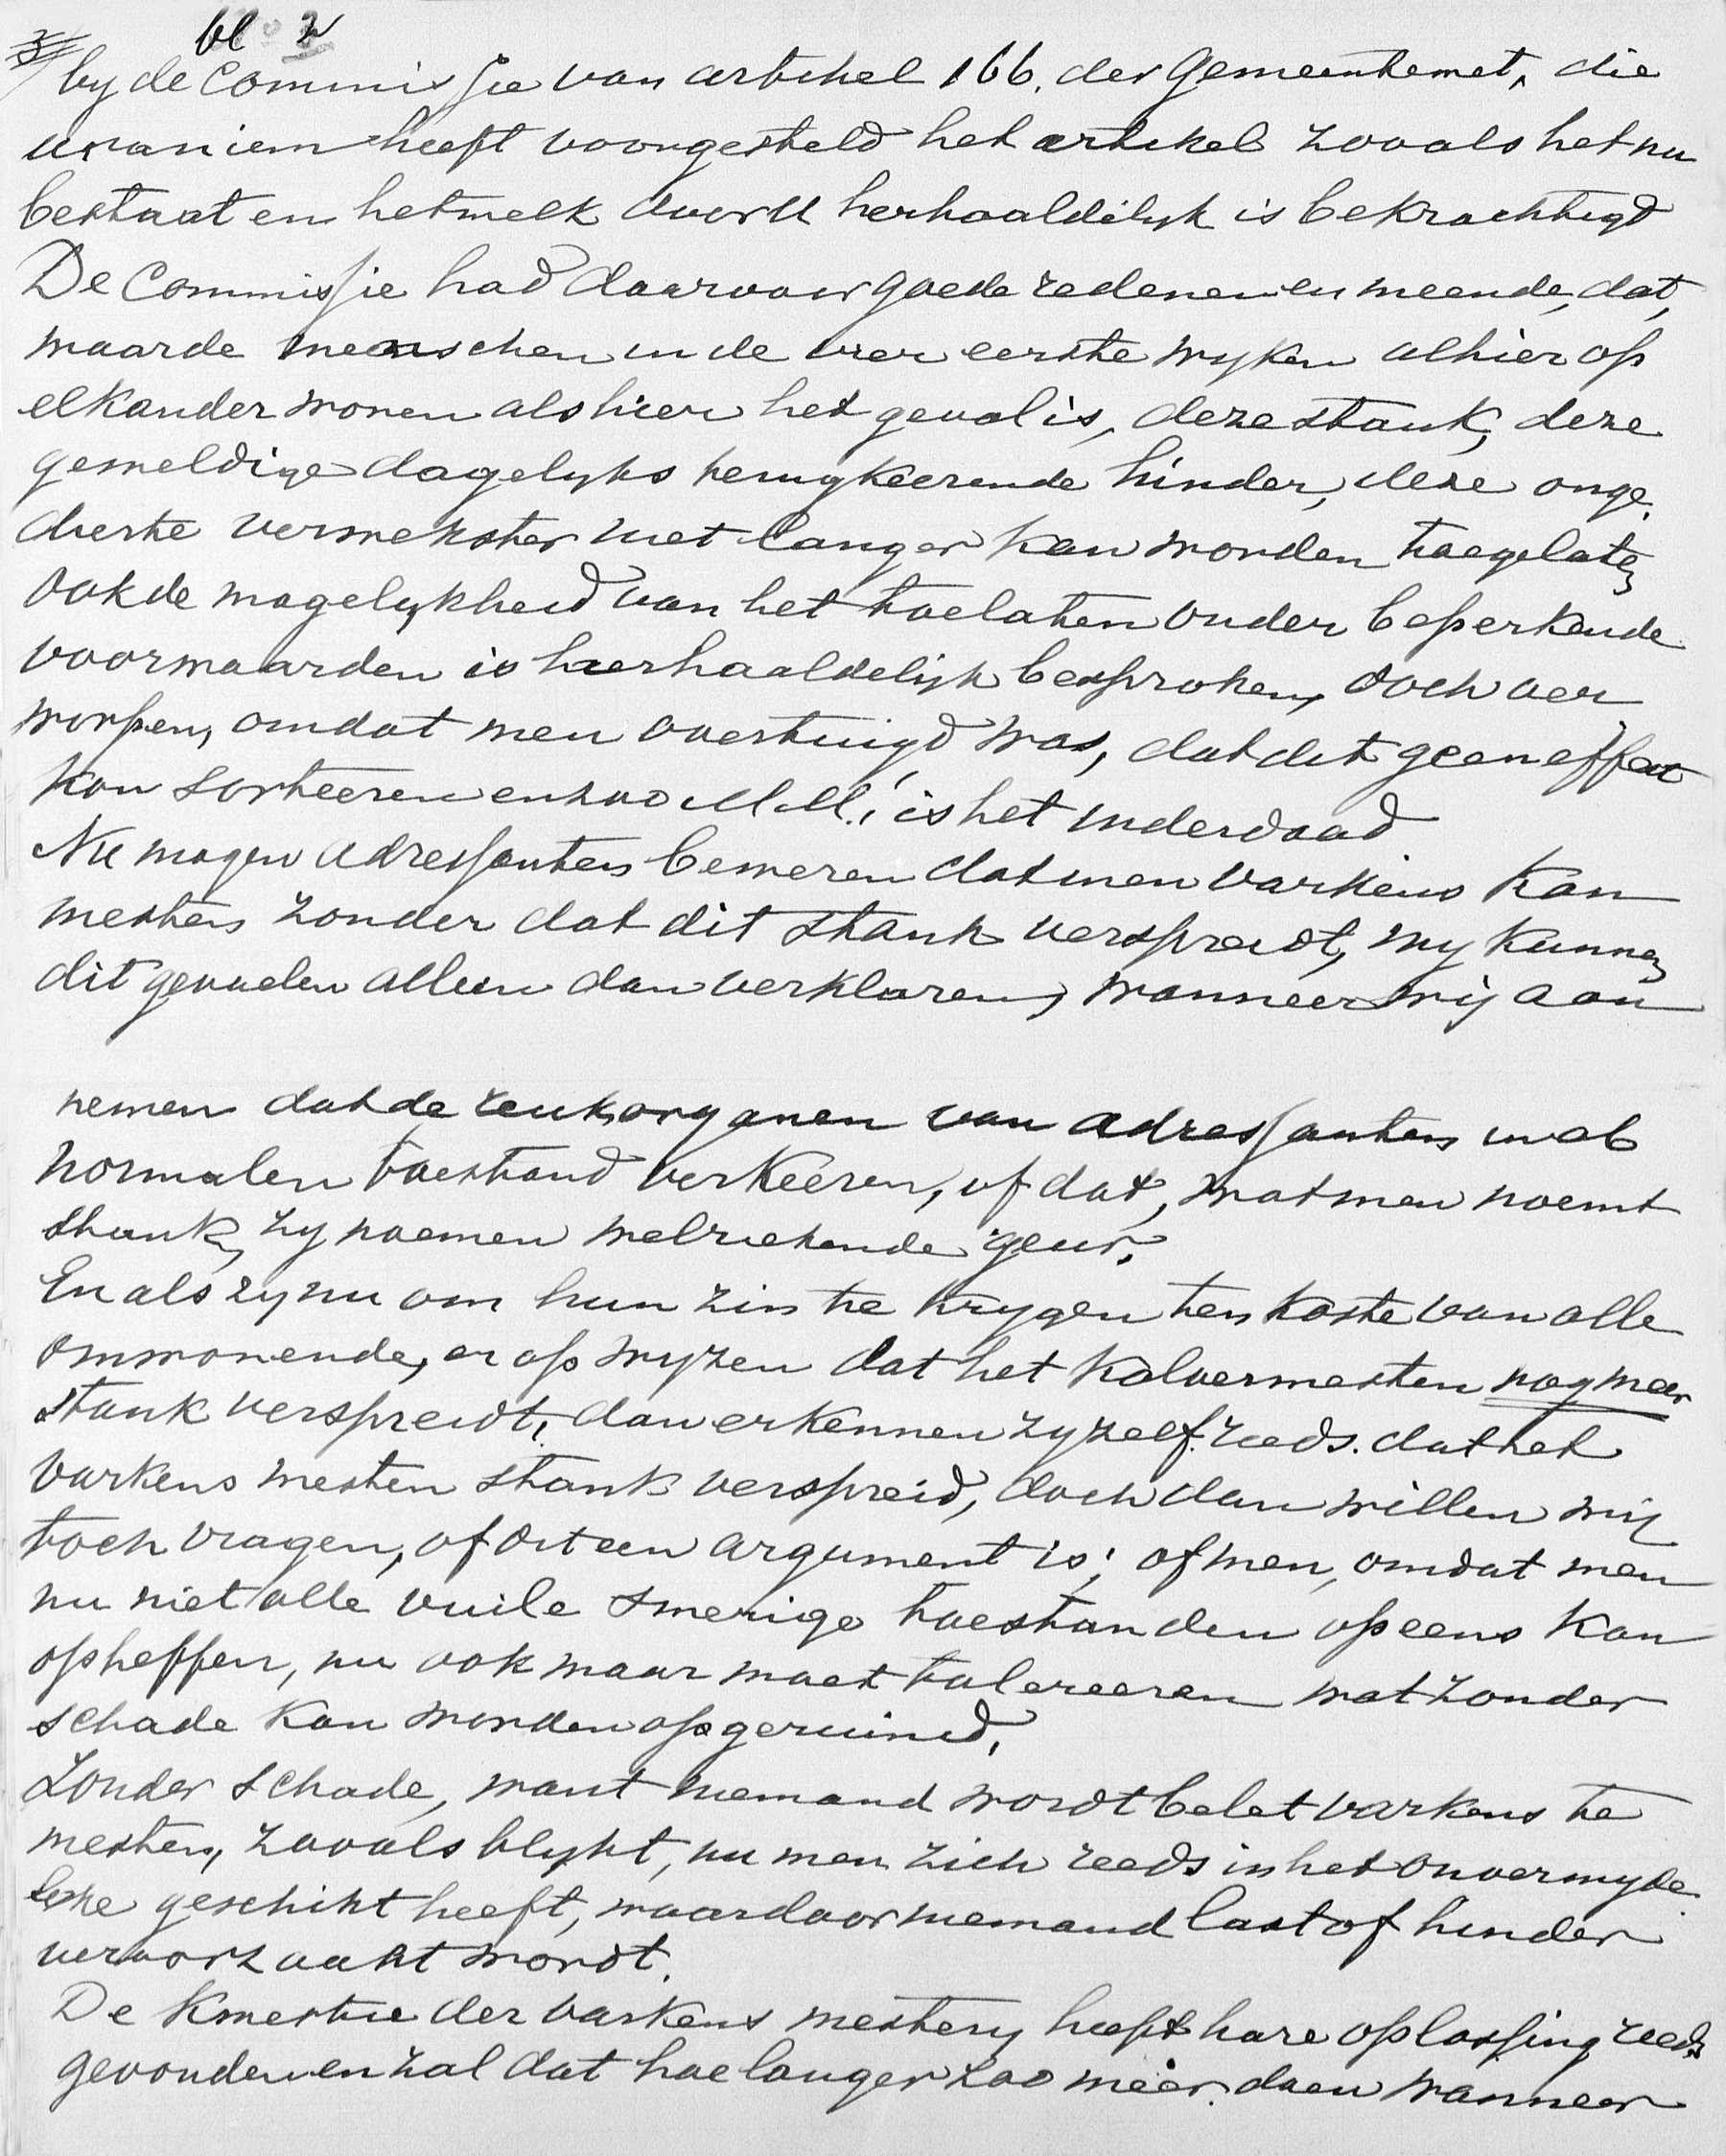 bl 2
by de Commissie van artikel 166. der Gemeentewet, die
unaniem heeft voorgesteld het artikel zooals het nu
bestaat en hetwelk door U herhaaldelijk is bekrachtigd
De Commissie had daarvoor goede redenen en meende, dat,
waar de menschen in de vier eerste wyken alhier op
elkander wonen als hier het geval is, deze stank, deze
geweldige dagelyks terugkeerende hinder, deze onge
dierte verwekster niet langer kan worden toegelaten
Ook de mogelykheid van het toelaten onder beperkende
voorwaarden is herhaaldelijk besproken, doch ver
worpen, omdat men overtuigd was, dat dit geen effect
kon sorteeren en zoo M.M.! is het inderdaad
Nu mogen adressanten beweren dat men varkens kan
mesten zonder dat dit stank verspreidt, wy kunnen
dit gevoelen alleen dan verklaren, wanneer wij aan
nemen dat de reukorganen van adressanten in ab
normalen toestand verkeeren, of dat, wat men noemt
stank, zy noemen welriekende geur.
En als zy nu om hun zin te krygen ten koste van alle
omwonende, er op wyzen dat het kalvermesten nog meer
stank verspreidt, dan erkennen zy zelf reeds. dat het
varkens mesten stank verspreid, doch dan willen wij
toch vragen, of dit een argument is; of men, omdat men
nu niet alle vuile smerige toestanden opeens kan
opheffen, nu ook maar moet tolereeren wat zonder
schade kan worden opgeruimd.
Zonder schade, want niemand wordt belet varkens te
mesten, zooals blykt, nu men zich reeds in het onvermyde
leke geschikt heeft, waardoor niemand last of hinder
veroorzaakt wordt.
De kwestie der varkens mestery heeft hare oplossing reeds
gevonden en zal dat hoe langer zoo meer. doen wanneer